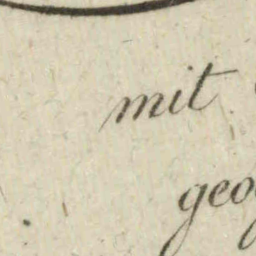 mit
geo